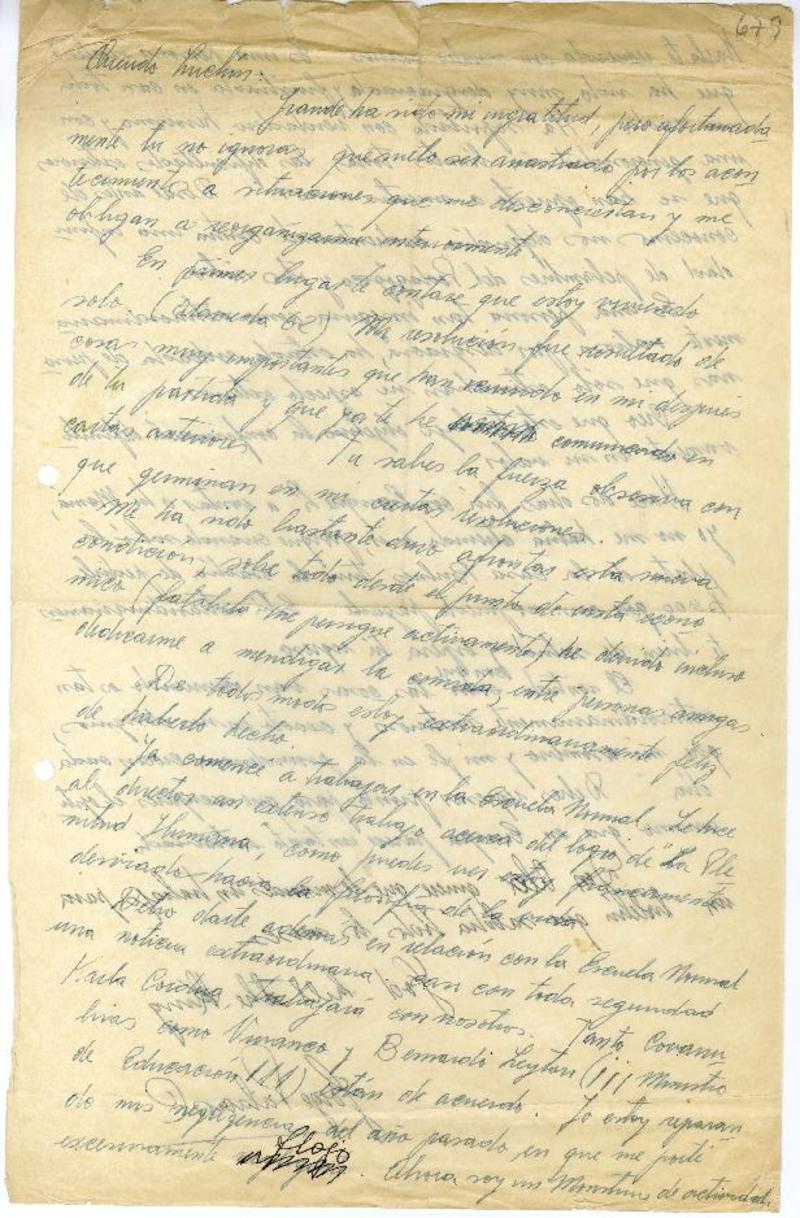 679
Querido Luchín:
Grande ha sido mi ingratitud, pero afortunada
mente tu no ignoras que suelo ser arrastrado por los acon
tecimientos a situaciones que me desconciertan y me
obligan a reorganizarme interiormente
En primer lugar te contaré que estoy viviendo
solo. (Alameda 62) Mi resolución fue resultado de
cosas muy importantes que han en mi después
de tu partida y que ya te he comunicado en
cartas anteriores Tu sabes la fuerza obsesiva con
que germinan en mi ciertas resoluciones.
Me ha sido bastante duro afrontar esta nueva
condición sobre todo desde el punto de vista econó
mico (patabela me persigue activamente) he debido incluso
dedicarme a mendigar la comida, entre personas amigas.
De todos modos estoy extraordinariamente feliz
de haberlo hecho.
Ya comencé a trabajar en la Escuela Normal. Le hice
al director un extenso trabajo acerca del logro de "La Ple
nitud Humana", como puedes ver estoy francamente
desviado hacia la filosofía de la
Debo darte además en relación con la Escuela Normal
una noticia extraordinaria: casi con toda seguridad
Karla Cordua trabajará con nosotros. Tanto Covarru
bias como Vivanco y Bernardo Leyton (¡¡¡ Ministro
de Educación!!!) están de acuerdo. Yo estoy reparan
do mis negligencias del año pasado, en que me porté
excesivamente flojo. Ahora soy un Monstruo de actividad.